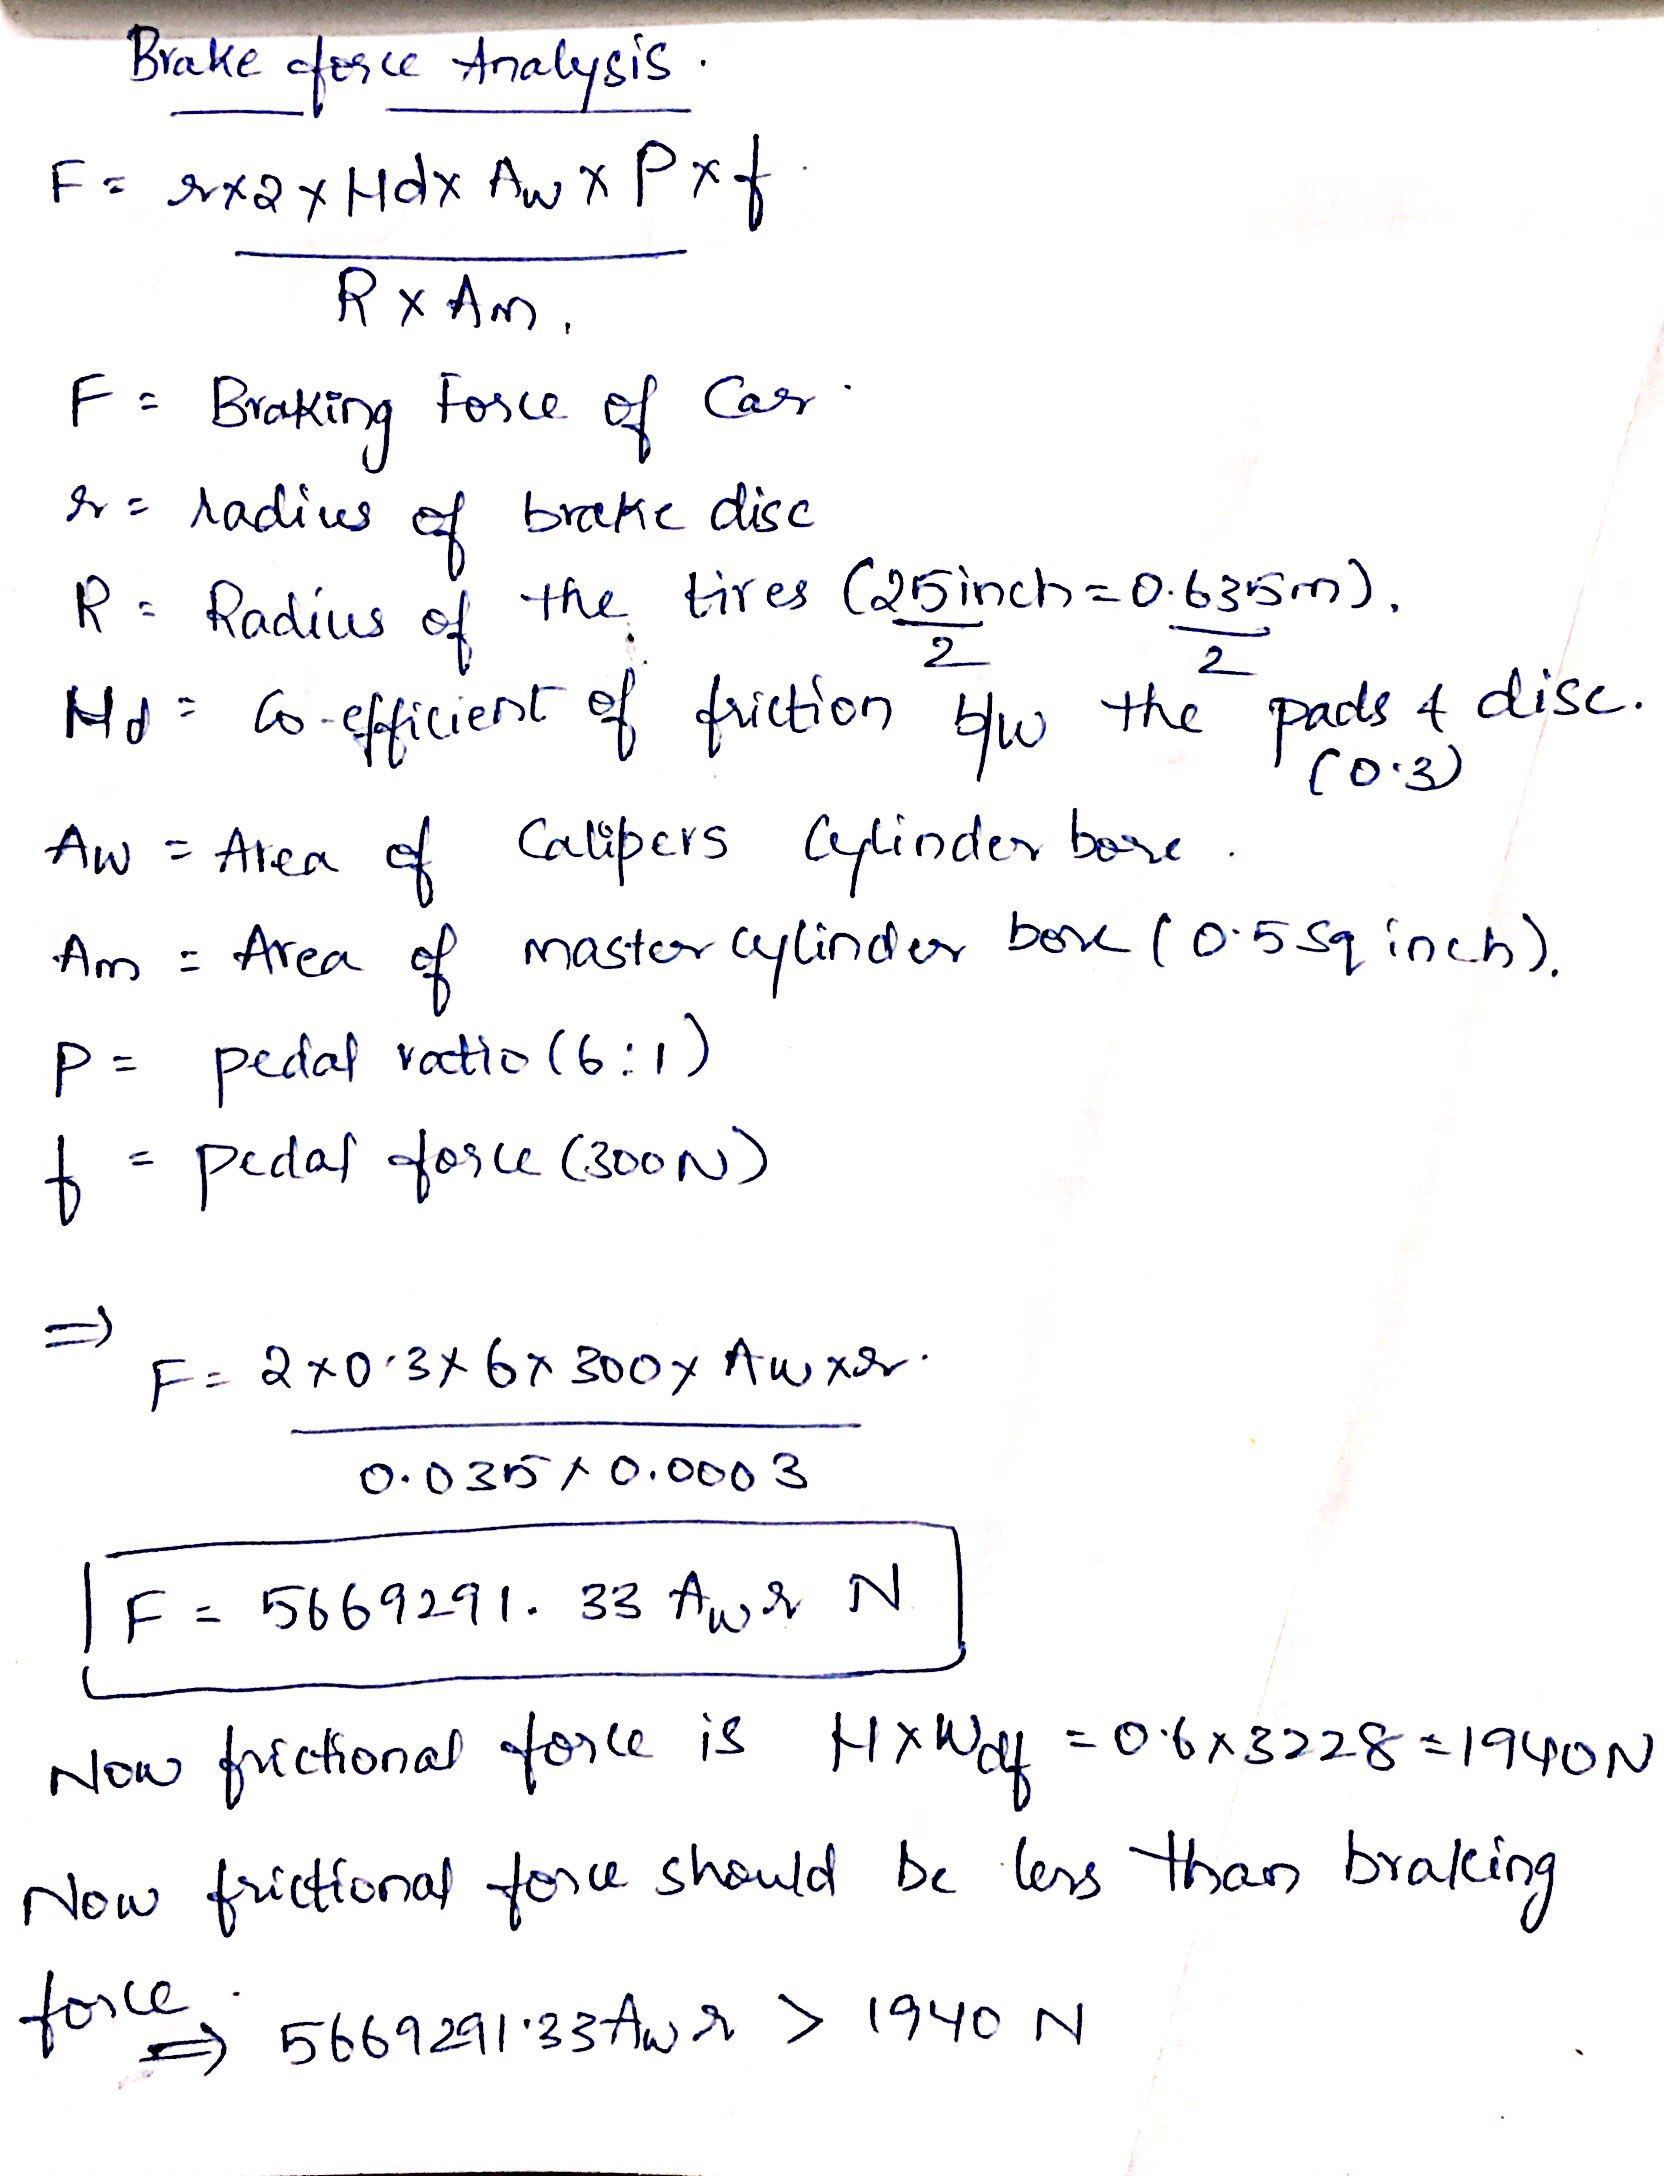 Brake force Analysis.
F = r×2×μd× Aw × P×f
R × Am.
F = Braking Force of Car.
r = radius of brake disc
R = Radius of the tires (25inch = 0.635m).
2 2
μd = Co-efficient of friction b/w the pads & disc.
(0.3)
Aw = Area of Calipers Cylinder bore.
Am = Area of master cylinder bore (0.5 sq inch).
P = pedal ratio (6:1)
f = pedal force (300N)
⇒
F = 2×0.3×6×300× Aw×r.
0.035×0.0003
F = 5669291.33 Aw r N
Now frictional force is μ×Wdf = 0.6×3228 = 1940N
Now frictional force should be less than braking
force.
⇒ 5669291.33Aw r > 1940 N